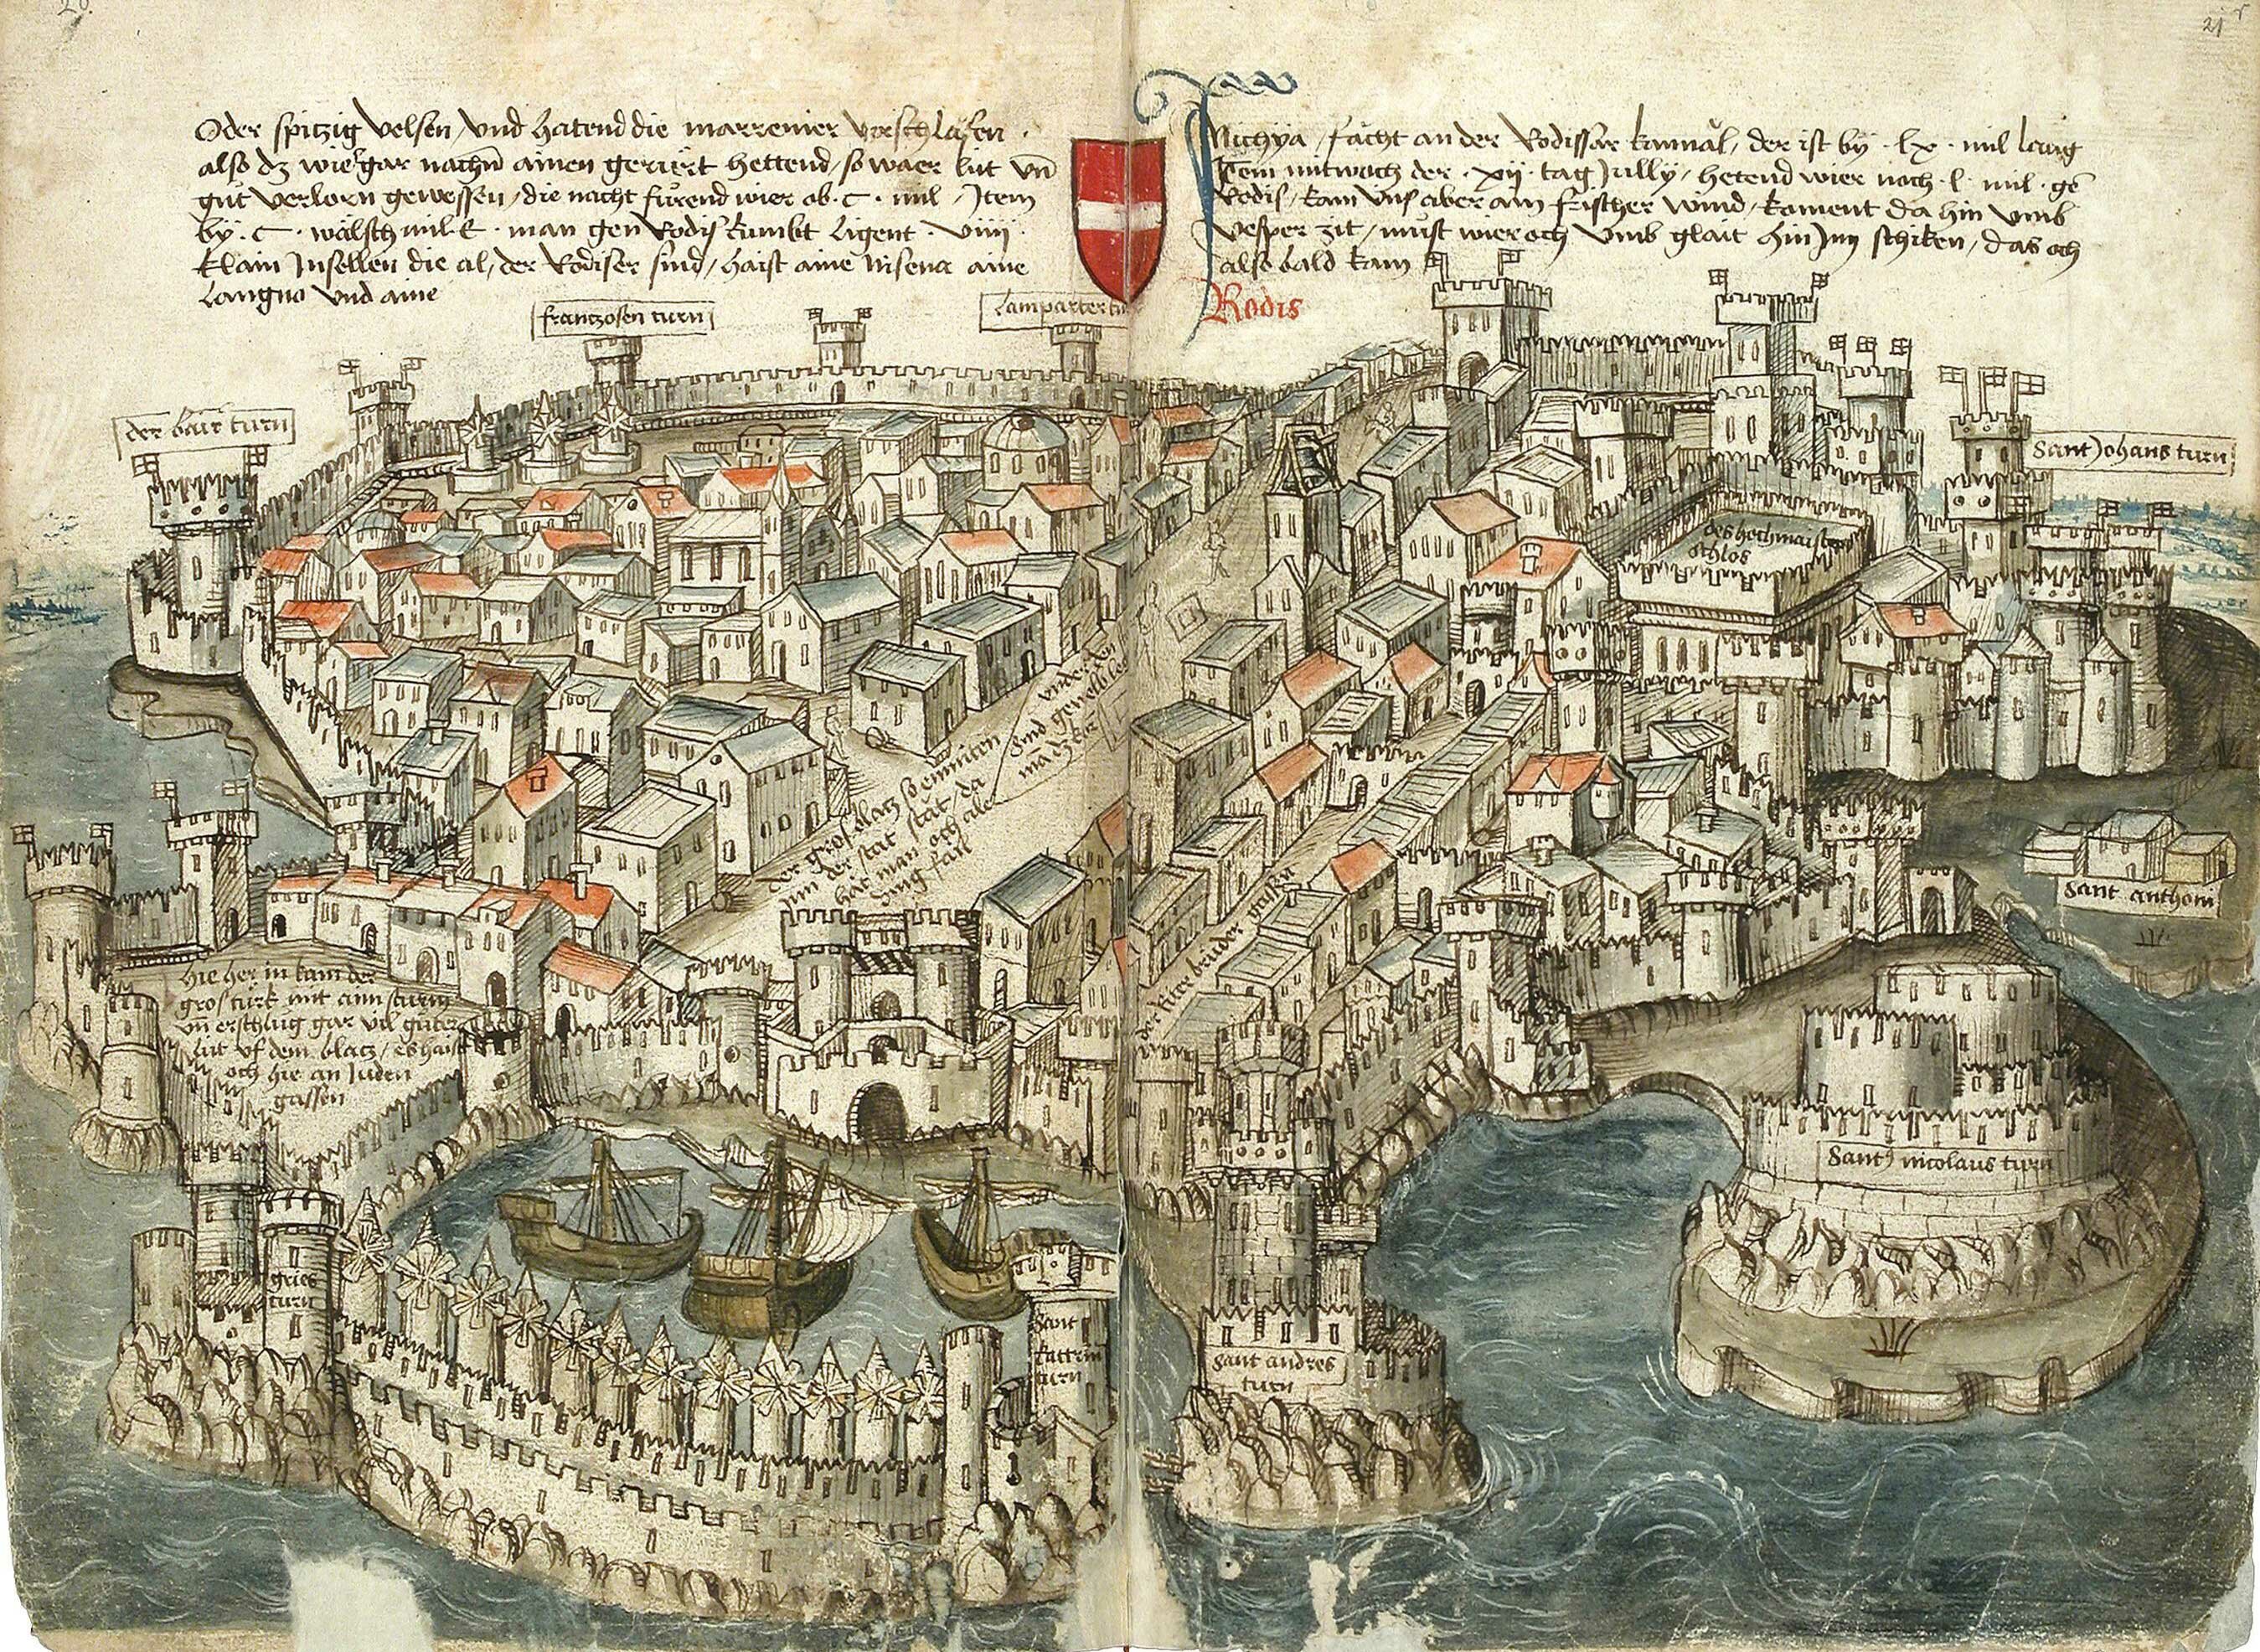 20
21 r
Oder spitzig velsen / und hatend die marrenier verschlaffen ·
also dz wier gar nachn ainen gerürt hettend / so waer lüt vn
gut verlorn gewessen / die nacht fürend wier ob · C · mil / Item
by · C · wälsch mil · E · man gen Rodis kumbt ligent · viiij ·
klain Insellen die al / der Rodiser sind / haist aine nisena aine
Languo vnd aine
Nichya / facht an der Rodissar kannal / der ist by · lx · mil lang
Item mitwoch der · xij · tag Jully / hetend wier noch · l · mil · gen
Rodis / kam vns aber ain frischer wind / koment da hin vmb
Vesper zit / must wier och vmb glait hin Jny schiken / das och
also bald kam
Rodis
frantzosen turn
Lamparter tu
der bair turn
Sant Johans turn
des hochmaisters
schlos
vnder den
sind gewelb
der gros blatz so enmiten
jnn der stat stat / da
hat man och aler
ding fail
der Riter bruder gassen
Sant anthoni
hie her in kam der
gros türk mit ainn sturm
vn erschlug gar vil guter
lüt vf dem blatz / es haist
och hie an Juden
gassen
Sant nicolaus turn
gries
turn
Sant
kattrin
turn
Sant andres
turn